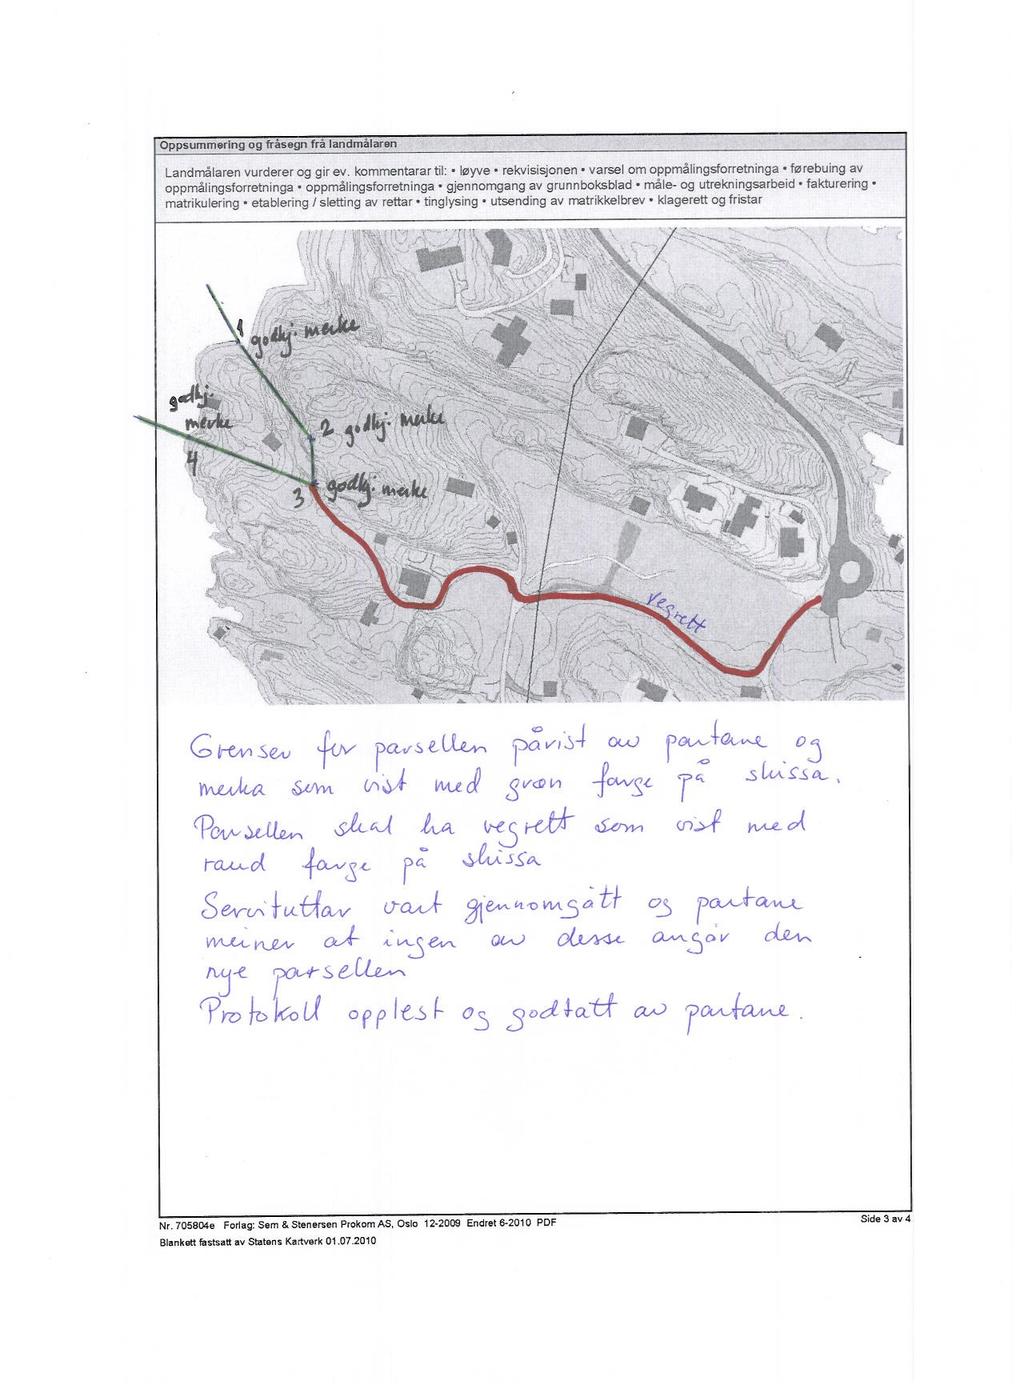 Oppsummering og fråsegn frå landmålaren
Landmålaren vurderer og gir ev. kommentarar til: • løyve • rekvisisjonen • varsel om oppmålingsforretninga • førebuing av
oppmålingsforretninga • oppmålingsforretninga • gjennomgang av grunnboksblad • måle- og utrekningsarbeid • fakturering •
matrikulering • etablering / sletting av rettar • tinglysing • utsending av matrikkelbrev • klagerett og fristar
1 godkj. merke
godkj.
merke
4
2 godkj. merke
3 godkj. merke
vegrett
Grenser for parsellen påvist av partane og
merka som vist med grøn farge på skissa.
Parsellen skal ha vegrett som vist med
raud farge på skissa
Servituttar vart gjennomgått og partane
meiner at ingen av desse angår den
nye parsellen
Protokoll opplest og godtatt av partane.
Nr. 705804e Forlag: Sem & Stenersen Prokom AS, Oslo 12-2009 Endret 6-2010 PDF
Side 3 av 4
Blankett fastsatt av Statens Kartverk 01.07.2010